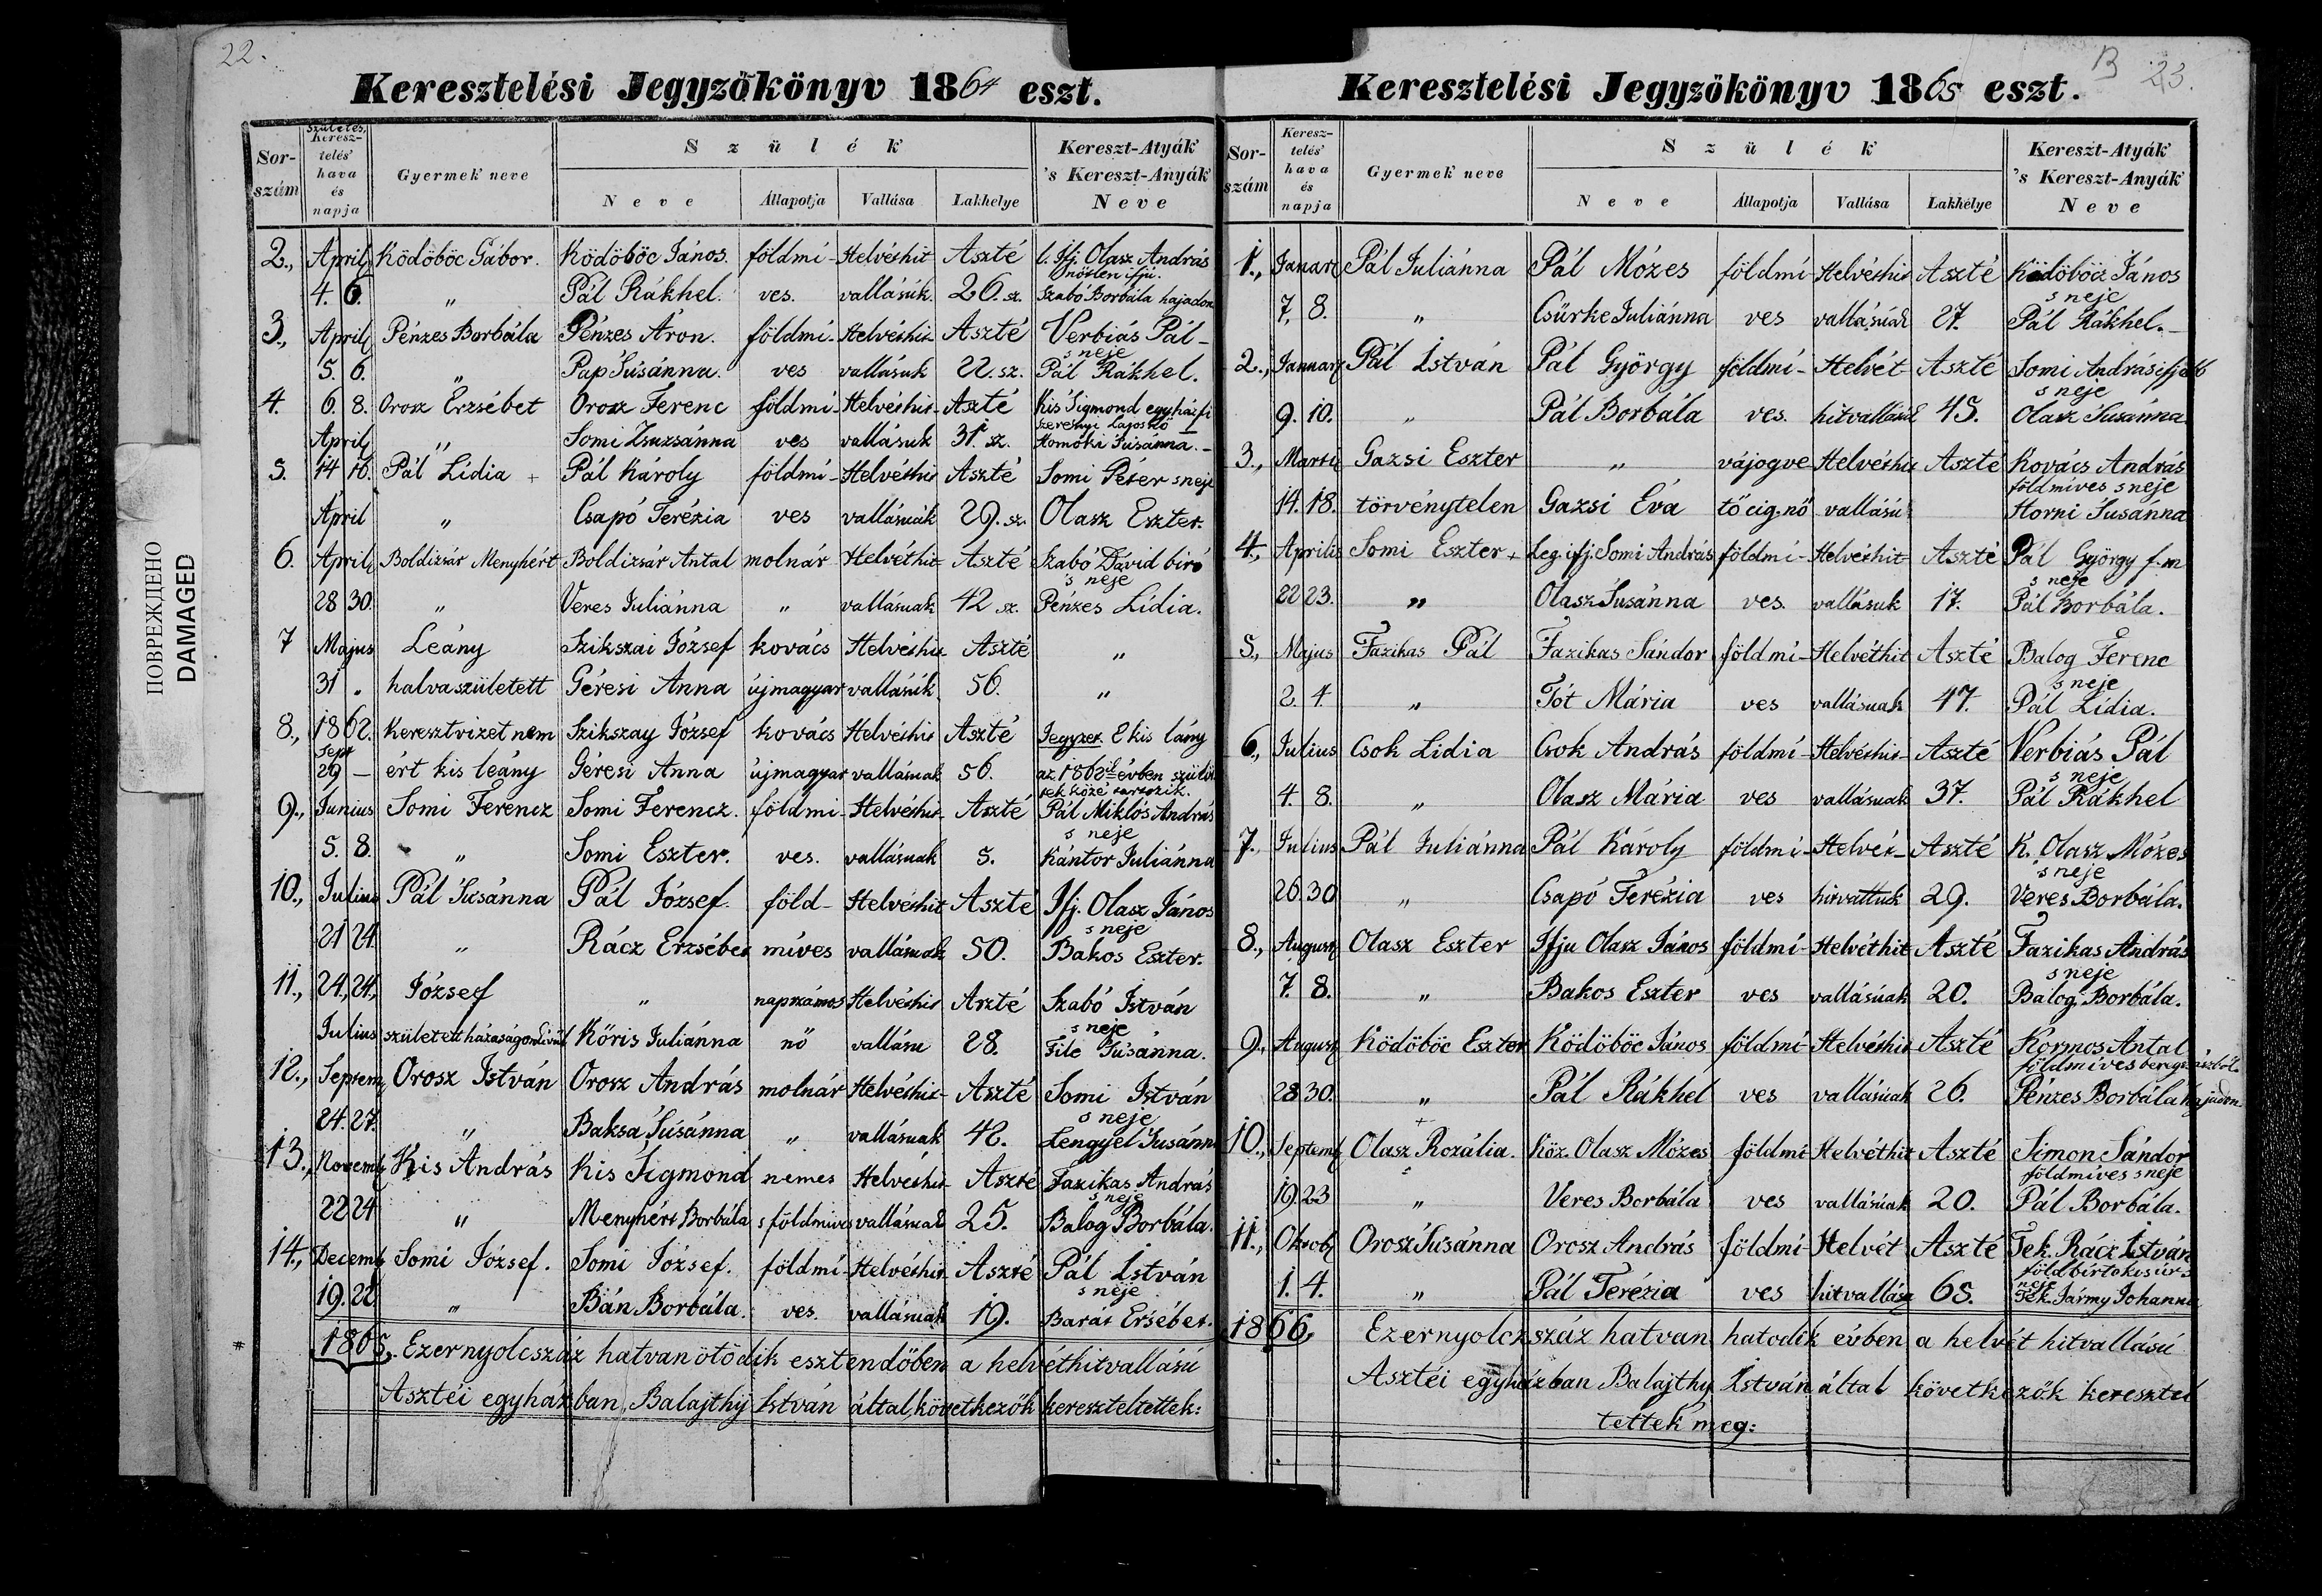 22.
Keresztelési Jegyzőkönyv 1864 eszt.
Sor-szám
születés
Keresz-telés' hava és napja
Gyermek neve
Szülék
Neve
Állapotja
Vallása
Lakhelye
Kereszt-Atyák 's Kereszt-Anyák Neve
2., April Ködöböc Gábor. Ködöböc János. földmí- Helvéthit Aszté l. Ifj. Olasz András
nőtlen ifju.
4. 6. " Pál Rákhel. ves. vallásúk. 26. sz. Szabó Borbála hajadon
3., April Pénzes Borbála Pénzes Áron. földmí- Helvéthit Aszté Verbiás Pál -
s neje
5. 6. " Pap Súsánna. ves vallásuk 22. sz. Pál Rákhel.
4. 6. 8. Orosz Erzsébet Orosz Ferenc földmí- Helvéthit- Aszté Kis Sigmond egyházfi
Szerenyi Lajosné
April " Somi Zsuzsánna ves vallásuk 31. sz. Homoki Súsánna. -
5. 14 16. Pál Lídia + Pál Károly földmí- Helvéthit Aszté Somi Péter s neje
April " Csapó Terézia ves vallásuak 29. sz. Olasz Eszter.
6. April Boldizsár Menyhért Boldizsár Antal molnár Helvéthit- Aszté Szabó Dávid biró
's neje
28 30 " Veres Juliánna " vallásuak 42 sz. Pénzes Lídia.
7 Majus Leány Szikszai József kovács Helvéthit Aszté "
31 " halvaszületett Géresi Anna újmagyar vallásúk. 56. "
8., 1862. Keresztvizet nem Szikszay József kovács Helvéthit Aszté Jegyzet. E kis lány
Sept
29 - ért kis leány Géresi Anna újmagyar vallásuak 56. az 1862ik évben szülöt
tek közé tartozik.
9., Junius Somi Ferencz Somi Ferencz. földmi- Helvéthit- Aszté Pál Miklós András
s neje
5. 8. " Somi Eszter. ves. vallásuak 5. Kántor Juliánna
10., Julius Pál Súsánna Pál József. föld- Helvéthit Aszté Ifj. Olasz János
s neje
21 24. " Rácz Erzsébet míves vallásuak 50. Bakos Eszter.
11., 24., 24., József " napszámos Helvéthit Aszté Szabó István
s neje
Julius született házaságon kivül Kőris Juliánna nő vallásu 28. File Súsánna.
12., Septem Orosz István Orosz András molnár Helvéthit- Aszté Somi István
s neje
24. 27. " Baksa Súsánna " vallásuak 42. Lengyel Susánna
13., Novemb Kis András Kis Sigmond nemes Helvéthit- Aszté Fazikas András
s neje
22 24 " Menyhért Borbála s földmives vallásuak 25. Balog Borbála.
14., Decemb Somi József. Somi József. földmí- Helvéthit Aszté Pál István
s neje
19. 22 " Bán Borbála. ves. vallásuak 19. Barát Ersébet.
1865, Ezernyolcszáz hatvanötödik esztendőben a helvéthitvallású
Asztéi egyházban, Balajthy István által, következők kereszteltettek:
B 23.
Keresztelési Jegyzőkönyv 1865 eszt.
Sor-szám
Keresz-telés' hava és napja
Gyermek neve
Szülék
Neve
Állapotja
Vallása
Lakhelye
Kereszt-Atyák 's Kereszt-Anyák Neve
1., Januar Pál Juliánna Pál Mózes földmí- Helvéthit Aszté Ködöböcz János
s neje
7, 8. " Csürke Juliánna ves vallásúak 27. Pál Rákhel. -
2., Januar Pál István Pál György földmí- Helvét Aszté Somi András ifjabb
s neje
9. 10. " Pál Borbála ves. hitvallásuk 45. Olasz Susánna
3., Marti Gazsi Eszter " vájogve Helvéthit Aszté Kovács András
földmíves s neje
14. 18. törvénytelen Gazsi Éva tő cig. nő vallású Horni Susánna
4., Aprilis Somi Eszter + Leg. ifj. Somi András földmí- Helvéthit Aszté Pál György f.m
s neje
22 23. " Olasz Susánna ves. vallásuk 17. Pál Borbála.
5., Majus Fazikas Pál Fazikas Sándor földmí- Helvéthit Aszté Balog Ferenc
s neje
2. 4. " Tót Mária ves vallásuak 47. Pál Lídia.
6., Julius Csok Lidia Csok András földmí- Helvéthit- Aszté Verbiás Pál
s neje
4. 8. " Olasz Mária ves vallásuak 37. Pál Rákhel
7., Julius Pál Juliánna Pál Károly földmí- Helvét- Aszté K. Olasz Mózes
s neje
26 30 " Csapó Terézia ves hitvalltuak 29. Veres Borbála.
8., August Olasz Eszter Ifju Olasz János földmí- Helvéthit Aszté Fazikas András
s neje
7. 8. " Bakos Eszter ves vallásúak 20. Balog Borbála.
9., August Ködöböc Eszter Ködöböc János földmí- Helvéthit- Aszté Kormos Antal
földmíves
28 30. " Pál Rákhel ves vallásúak 26. Pénzes Borbála hajadon
10., Septemb Olasz Rozália. Köz. Olasz Mózes földmí Helvéthit Aszté Simon Sándor
földmíves s neje
19 23 " Veres Borbála ves vallásúak 20. Pál Borbála.
11., Oktob Orosz Súsánna Orosz András földmí- Helvét Aszté Tek. Rácz István
földbirtokos úr s
neje
1. 4. " Pál Terézia ves hitvallásu 65. Tek. Jármy Johanna
1866, Ezernyolczszáz hatvan hatodik évben a helvét hitvallású
Asztéi egyházban Balajthy István által következők keresztel
tettek meg:
ПОВРЕЖДЕНО
DAMAGED